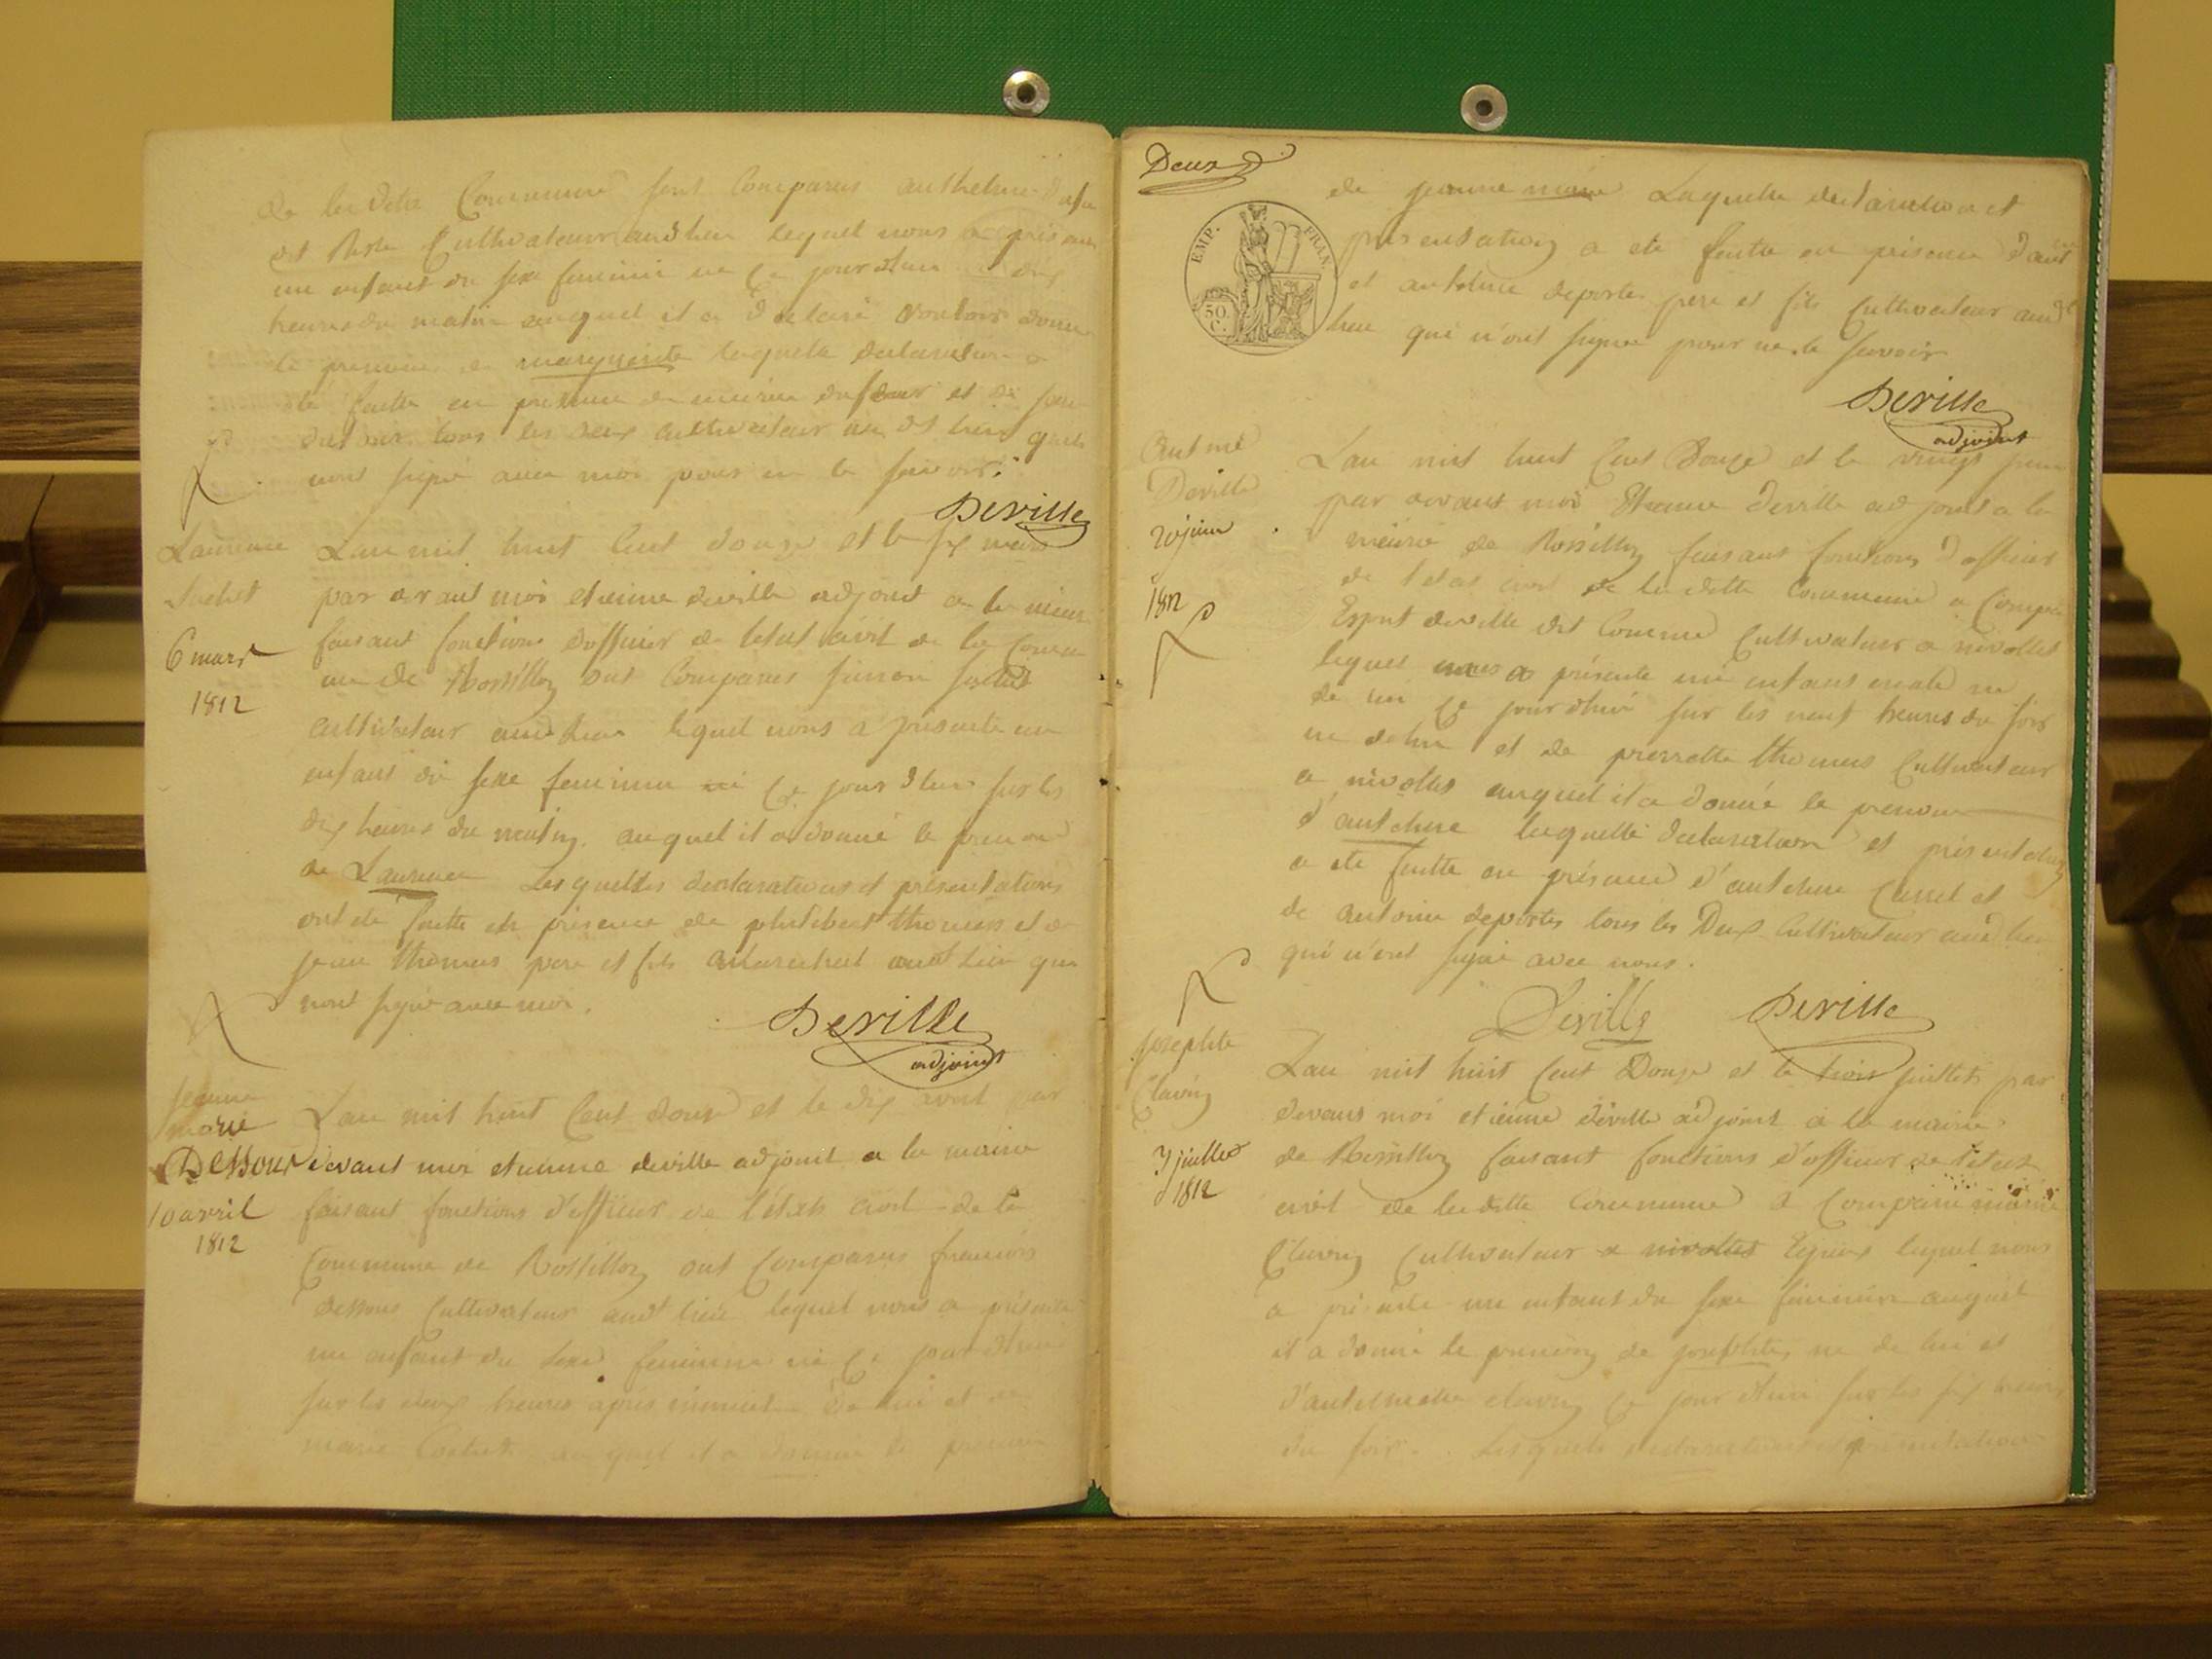 de la ditte Commune sont Comparus authelme
dit Cultivateur audlieu lequel nous a
un enfant du sexe feminin ne Ce jourdhui dix
heures du matin auquel il a declaré vouloir donner
le prenom de marguerite laquelle declaration a
été faitte en presence de et de
tous les deux cultivateur au dt lieu qui
nont signé avec moi pour ne le scavoir.
Deville
Laurence
Sachet
6 mars
1812
Lan mil huit Cent douze et le six mars
par devant moi etienne deville adjoint a la mairie
faisant fonctions dofficier de letat civil de la Comu
ne de Rossillon sont Comparus Sachet
Cultivateur audlieu lequel nous a présenté un
enfant du sexe feminin né Ce jour dhui sur les
dix heures du matin auquel il a donné le prenom
de Laurence Lesquelles declarations et présentations
ont été faitte en présence de philibert thomas et de
jean thomas pere et fils audt lieu qui
nont signé avec moi.
Deville
adjoint
jeanne
marie
Dessous
10 avril
1812
Lan mil huit Cent douze et le dix avril par
devant moi etienne deville adjoint a la mairie
faisant fonctions d'officier de l'état civil de la
Commune de Rossillon sont Comparus francois
dessous Cultivateur audt lieu lequel nous a présenté
un enfant du sexe feminin né Ce jour dhui
sur les deux heures après minuit De lui et de
marie auquel il a donné le prenom
Deux
de jeanne marie Laquelle declaration et
présentation a été faitte en présence d'ant
et anthelme deportes pere et fils Cultivateur audt
lieu qui n'ont signé pour ne le scavoir
EMP. FRAN.
50
C.
Deville
adjoint
Deville
20 juin
1812
Lan mil huit Cent Douze et le vingt juin
par devant moi Etienne deville adjoint a la
mairie de Rossillon faisant fonctions d'officier
de l'etat civil de la ditte Commune a Comparu
Esprit deville dit Cultivateur a nivollet
lequel nous a présenté un enfant male né
de lui Ce jourdhui sur les neuf heures du soir
ne de lui et de pierrette thomas Cultivateur
a nivollet auquel il a donné le prenom
d'antelme laquelle declaration et présentation
a été faitte en présence d'antelme et
de antoine deportes tous les Deux Cultivateur audlieu
qui n'ont signé avec nous.
Deville Deville
josephte
Clavin
3 juillet
1812
Lan mil huit Cent Douze et le trois juillet par
devant moi etienne deville adjoint a la mairie
de Rossillon faisant fonctions d'officier de l'etat
civil de la ditte Commune a Comparu
Clavin Cultivateur a nivollet lequel nous
a présenté un enfant du sexe feminin auquel
il a donné le prenom de josephte ne de lui et
d'antelmette Ce jour dhui sur les six heures
du soir. Lesquels declarations et présentations